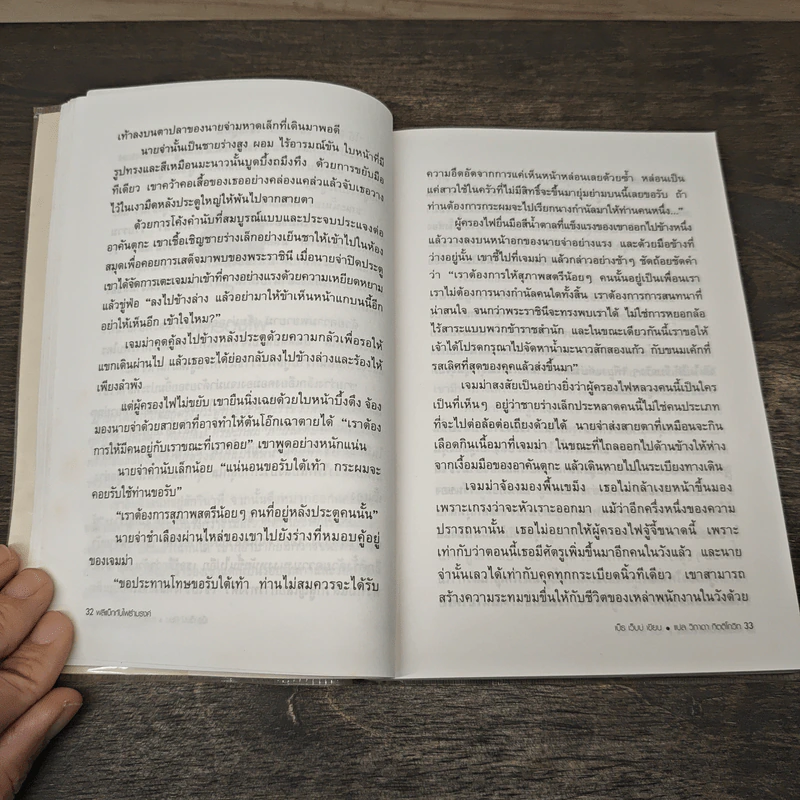 เท้าลงบนตาปลาของนายจ่ามหาดเล็กที่เดินมาพอดี
นายจ่านั้นเป็นชายร่างสูง ผอม ไร้อารมณ์ขัน ใบหน้าที่มี
รูปทรงและสีเหมือนมะนาวนั้นบูดบึ้งถมึงทึง ด้วยการขยับมือ
ทีเดียว เขาคว้าคอเสื้อของเธออย่างคล่องแคล่วแล้วจับเธอวาง
ไว้ในเงามืดหลังประตูใหญ่ให้พ้นไปจากสายตา
ด้วยการโค้งคำนับที่สมบูรณ์แบบและประจบประแจงต่อ
อาคันตุกะ เขาเชื้อเชิญชายร่างเล็กอย่างเย็นชาให้เข้าไปในห้อง
สมุดเพื่อคอยการเสด็จมาพบของพระราชินี เมื่อนายจ่าปิดประตู
เขาได้จัดการเตะเจมม่าเข้าที่คางอย่างแรงด้วยความเหยียดหยาม
แล้วขู่ฟ่อ “ลงไปข้างล่าง แล้วอย่ามาให้ข้าเห็นหน้าแกบนนี้อีก
อย่าให้เห็นอีก เข้าใจไหม?”
เจมม่าคุดคู้ลงไปข้างหลังประตูด้วยความกลัวเพื่อรอให้
แขกเดินผ่านไป แล้วเธอจะได้ย่องกลับลงไปข้างล่างและร้องไห้
เพียงลำพัง
แต่ผู้ครองไฟไม่ขยับ เขายืนนิ่งเฉยด้วยใบหน้าบึ้งตึง จ้อง
มองนายจ่าด้วยสายตาที่อาจทำให้ต้นโอ๊กเฉาตายได้ “เราต้อง
การให้มีคนอยู่กับเราขณะที่เราคอย” เขาพูดอย่างหนักแน่น
นายจ่าคำนับเล็กน้อย “แน่นอนขอรับใต้เท้า กระผมจะ
คอยรับใช้ท่านขอรับ”
“เราต้องการสุภาพสตรีน้อยๆ คนที่อยู่หลังประตูคนนั้น”
นายจ่าชำเลืองผ่านไหล่ของเขาไปยังร่างที่หมอบคู้อยู่
ของเจมม่า
“ขอประทานโทษขอรับใต้เท้า ท่านไม่สมควรจะได้รับ
32 ฟลีแบ็กกับไฟ
ความอึดอัดจากการแค่เห็นหน้าหล่อนเลยด้วยซ้ำ หล่อนเป็น
แค่สาวใช้ในครัวที่ไม่มีสิทธิ์จะขึ้นมายุ่มย่ามบนนี้เลยขอรับ ถ้า
ท่านต้องการกระผมจะไปเรียกนางกำนัลมาให้ท่านคนหนึ่ง...”
ผู้ครองไฟยื่นมือสีน้ำตาลที่แข็งแรงของเขาออกไปข้างหนึ่ง
แล้ววางลงบนหน้าอกของนายจ่าอย่างแรง และด้วยมือข้างที่
ว่างอยู่นั้น เขาชี้ไปที่เจมม่า แล้วกล่าวอย่างช้าๆ ชัดถ้อยชัดคำ
ว่า “เราต้องการให้สุภาพสตรีน้อยๆ คนนั้นอยู่เป็นเพื่อนเรา
เราไม่ต้องการนางกำนัลคนใดทั้งสิ้น เราต้องการการสนทนาที่
น่าสนใจ จนกว่าพระราชินีจะทรงพบเราได้ ไม่ใช่การหยอกล้อ
ไร้สาระแบบพวกข้าราชสำนัก และในขณะเดียวกันนี้เราขอให้
เจ้าได้โปรดกรุณาไปจัดหาน้ำมะนาวสักสองแก้ว กับขนมเค้กที่
รสเลิศที่สุดของคุคแล้วส่งขึ้นมา”
เจมม่าสงสัยเป็นอย่างยิ่งว่าผู้ครองไฟหลวงคนนี้เป็นใคร
เป็นที่เห็นๆ อยู่ว่าชายร่างเล็กประหลาดคนนี้ไม่ใช่คนประเภท
ที่จะไปต่อล้อต่อเถียงด้วยได้ นายจ่าส่งสายตาที่เหมือนจะกิน
เลือดกินเนื้อมาที่เจมม่า ในขณะที่ไถลออกไปด้านข้างให้ห่าง
จากเงื้อมมือของอาคันตุกะ แล้วเดินหายไปในระเบียงทางเดิน
เจมม่าจ้องมองพื้นเขม็ง เธอไม่กล้าเงยหน้าขึ้นมอง
เพราะเกรงว่าจะหัวเราะออกมา แม้ว่าอีกครึ่งหนึ่งของความ
ปรารถนานั้น เธอไม่อยากให้ผู้ครองไฟจู้จี้ขนาดนี้ เพราะ
เท่ากับว่าตอนนี้เธอมีศัตรูเพิ่มขึ้นมาอีกคนในวังแล้ว และนาย
จ่านั้นเลวได้เท่ากับคุคทุกกระเบียดนิ้วทีเดียว เขาสามารถ
สร้างความระทมขมขื่นให้กับชีวิตของเหล่าพนักงานในวังด้วย
เบ็ธ เว็บบ์ เขียน • แปล วิภาดา กิตติโกวิท 33